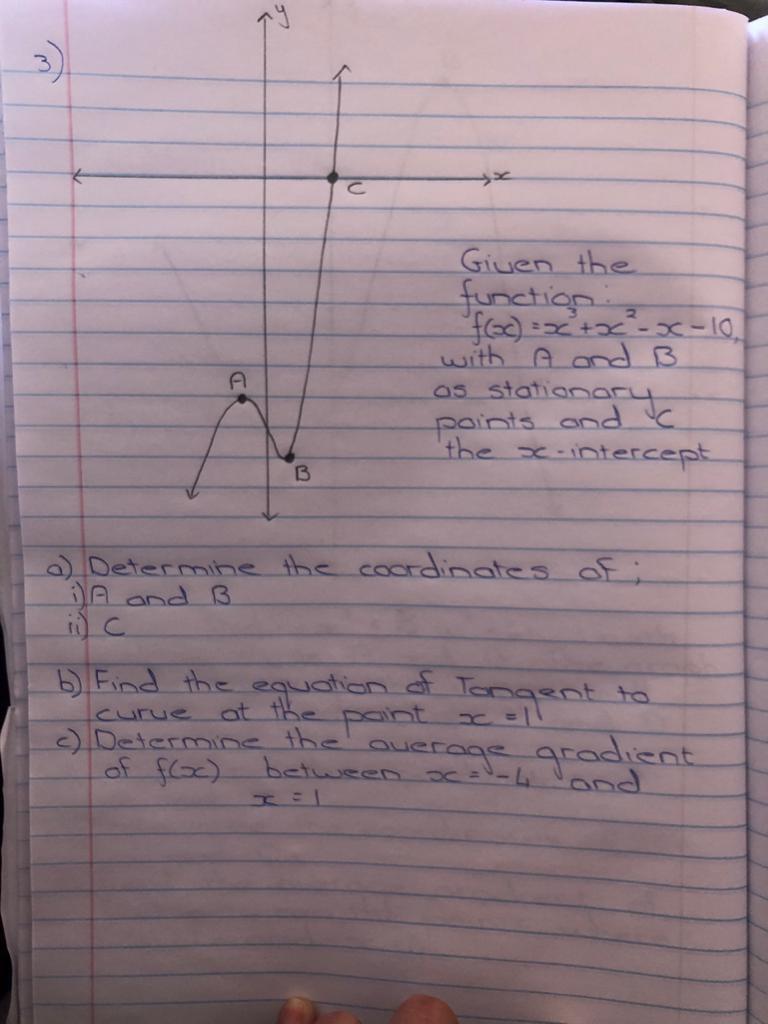 3)
y
x
C
A
B
Given the
function:
f(x) = x³ + x² - x - 10,
with A and B
as stationary
points and C
the x-intercept
a) Determine the coordinates of;
i) A and B
ii) C
b) Find the equation of Tangent to
curve at the point x = 1
c) Determine the average gradient
of f(x) between x = -4 and
x = 1